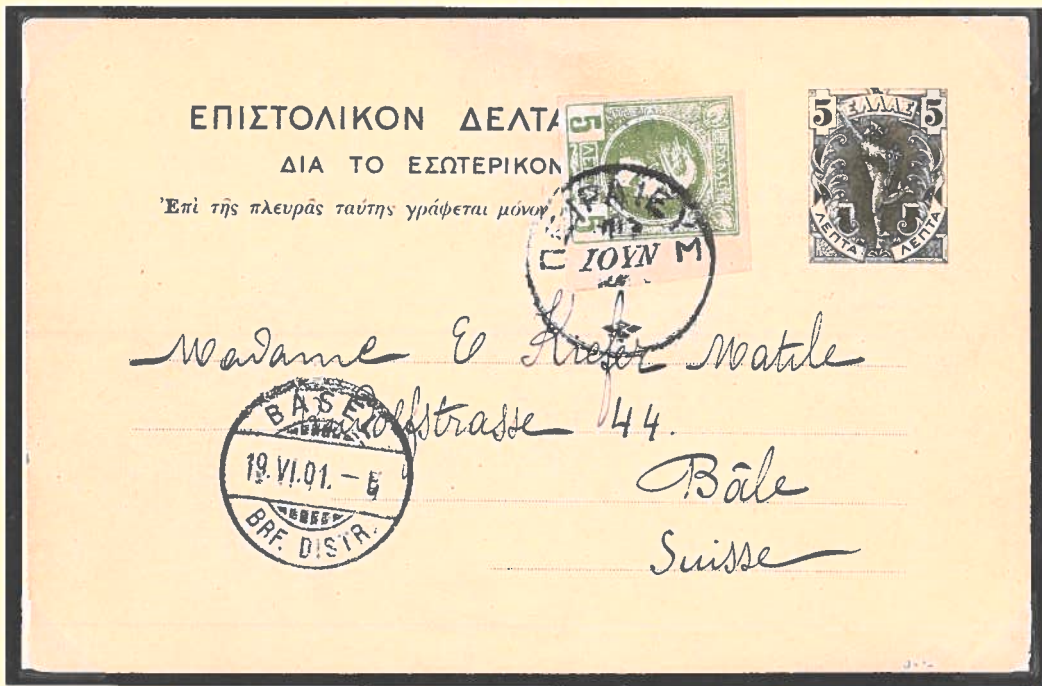 ΕΠΙΣΤΟΛΙΚΟΝ ΔΕΛΤΑ
ΔΙΑ ΤΟ ΕΣΩΤΕΡΙΚΟΝ
Ἐπὶ τῆς πλευρᾶς ταύτης γράφεται μόνον
5 ΕΛΛΑΣ 5
5 5
ΛΕΠΤΑ ΛΕΠΤΑ
5
5
ΙΟΥΝ
Μ
Madame E Kiefer Matile
44.
Bâle
Suisse
BASEL
19.VI.01. -
BRF. DISTR.